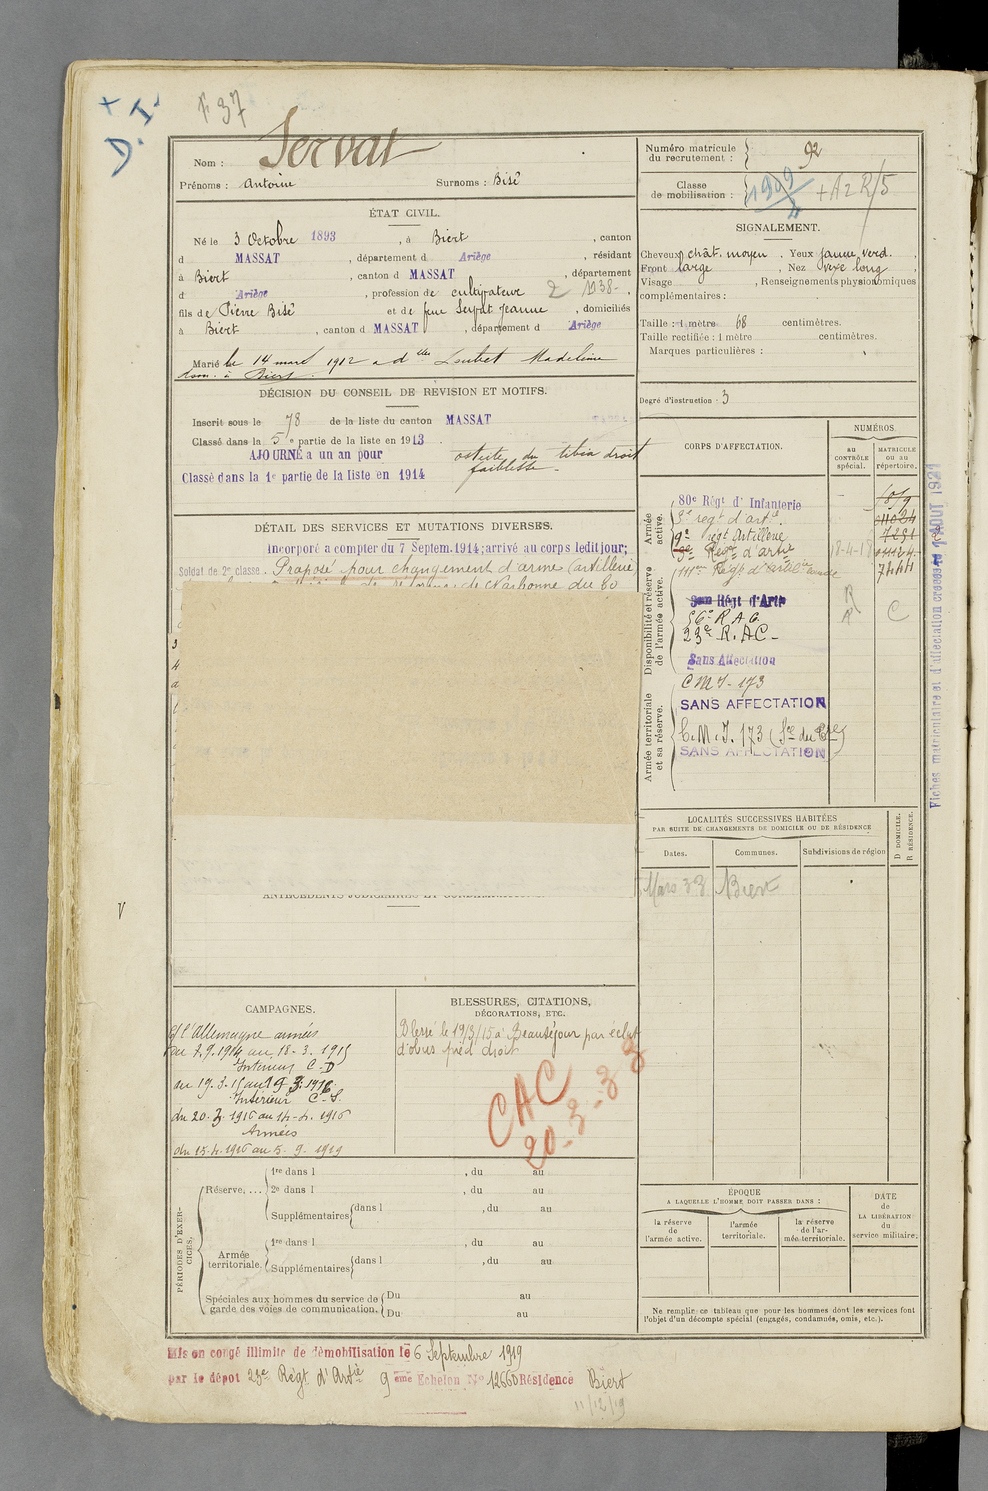 F 37
D. I.
Nom : Servat
Prénoms : Antoine Surnoms : Bisé
ÉTAT CIVIL.
Né le 3 Octobre 1893, à Biert, canton
d MASSAT, département d Ariège, résidant
à Biert, canton d MASSAT, département
d Ariège, profession de cultivateur
fils de Pierre Bisé et de feue Servat Jeanne, domiciliés
à Biert, canton d MASSAT, département d Ariège
Marié le 14 mars 1912 a dlle Loubet Madeleine
dom. à Biert.
DÉCISION DU CONSEIL DE RÉVISION ET MOTIFS.
Inscrit sous le 78 de la liste du canton MASSAT
Classé dans la 5e partie de la liste en 1913.
AJOURNÉ a un an pour ostéite du tibia droit
faiblesse
Classé dans la 1e partie de la liste en 1914
DÉTAIL DES SERVICES ET MUTATIONS DIVERSES.
Incorporé a compter du 7 Septem. 1914; arrivé au corps ledit jour;
Soldat de 2e classe. Proposé pour changement d'arme (artillerie)
de Narbonne du 60
CAMPAGNES.
c/ l'Allemagne armées
du 7.9.1914 au 18.3.1915
Intérieur C.D
du 19.3.15 au 19.3.1916
Intérieur C.S.
du 20.3.1916 au 14.4.1916
Armées
du 15.4.1916 au 5.9.1919
BLESSURES, CITATIONS,
DÉCORATIONS, ETC.
Blessé le 19/3/15 à Beauséjour par eclat
d'obus pied droit
CAC
20-3-33
PÉRIODES D'EXERCICES.
Réserve, ...
1re dans l , du au
2e dans l , du au
Supplémentaires dans l , du au
Armée
territoriale.
1re dans l , du au
Supplémentaires dans l , du au
Spéciales aux hommes du service de
garde des voies de communication.
Du au
Du au
Mis en congé illimité de démobilisation le 6 Septembre 1919
par le dépot 23e Régt d'Artie 9 eme Echelon No 12660 Résidence Biert
11/12/19
Numéro matricule
du recrutement : 92
Classe
de mobilisation : 1909 + A2 R/5
SIGNALEMENT.
Cheveux chât. moyen. Yeux jaune verd.
Front large, Nez vexe long,
Visage , Renseignements physionomiques
complémentaires :
Taille : 1 mètre 68 centimètres.
Taille rectifiée : 1 mètre centimètres.
Marques particulières :
Degré d'instruction : 3
CORPS D'AFFECTATION.
NUMÉROS
AU CONTRÔLE spécial.
MATRICULE ou au répertoire.
Armée active.
80e Régt d'Infanterie
3e regt d'artie.
9e regt Artillerie
Regt d'artie
18-4-18
111me Regt d'artlie lourde 7444
Disponibilité et réserve de l'armée active.
56e R.A.C.
23e R.A.C-
Sans Affectation
R
R
C
Armée territoriale et sa réserve.
C M I - 173
SANS AFFECTATION
C. M. I. 173
SANS AFFECTATION
Fiches matriculaire et d'affectation créées le 1 AOUT 1921
LOCALITÉS SUCCESSIVES HABITÉES
PAR SUITE DE CHANGEMENTS DE DOMICILE OU DE RÉSIDENCE
Dates. Communes. Subdivisions de région
D DOMICILE.
R RÉSIDENCE.
Mars 33 Biert
ÉPOQUE
A LAQUELLE L'HOMME DOIT PASSER DANS :
la réserve de l'armée active.
l'armée territoriale.
la réserve de l'armée territoriale.
DATE de LA LIBÉRATION du service militaire.
Ne remplir ce tableau que pour les hommes dont les services font
l'objet d'un décompte spécial (engagés, condamnés, omis, etc.).